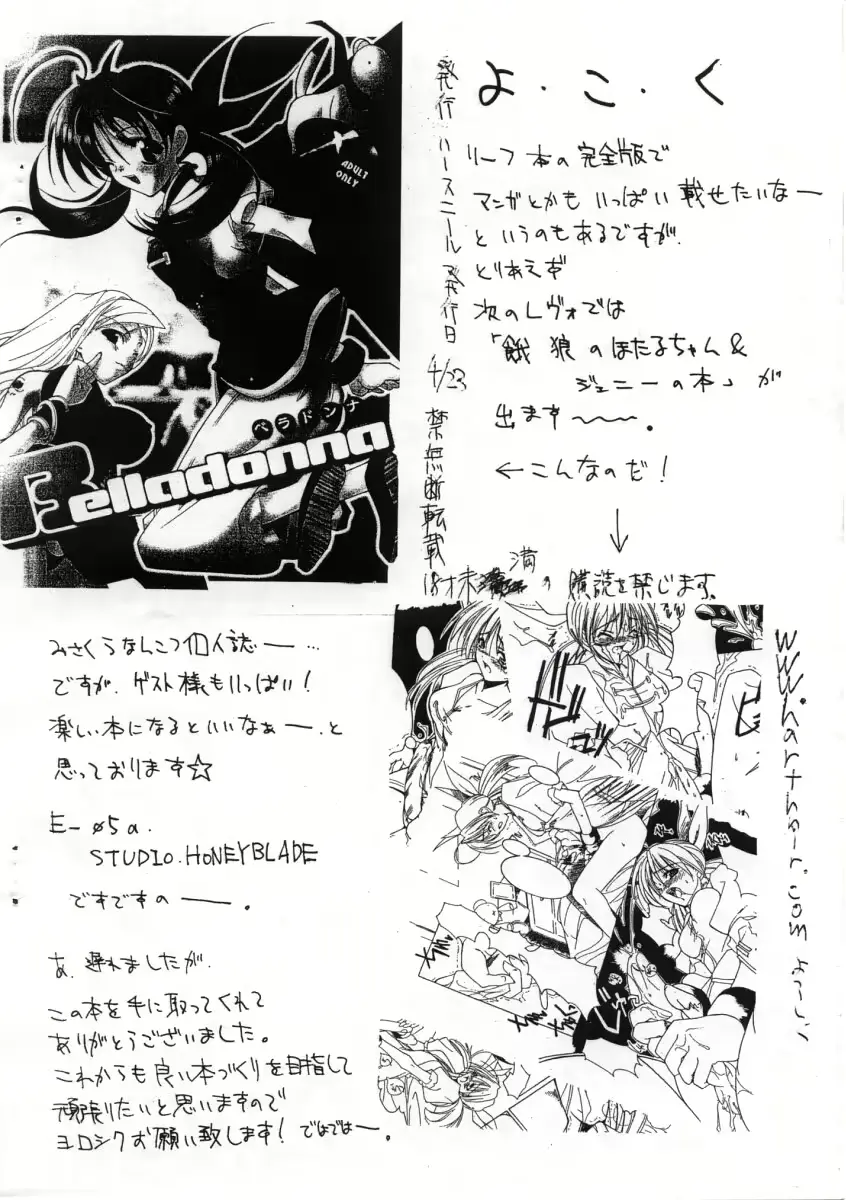 よ・こ・く
リーフ本の完全版で
マンガとかもいっぱい載せたいなー
というのもあるですが、
とりあえず
次のレヴォでは
「餓狼のほたるちゃん&
ジェニーの本」が
出ます〜〜。
←こんなのだ!
↓
発行 ハースニール 発行日 4/23 禁無断転載
18才未満の購読を禁じます。
ADULT
ONLY
ベラドンナ
Belladonna
みさくらなんこつ個人誌ー…
ですが、ゲスト様もいっぱい!
楽しい本になるといいなぁー、と
思っております☆
E-05a
STUDIO.HONEYBLADE
ですですのー。
あ、遅れましたが、
この本を手に取ってくれて
ありがとうございました。
これからも良い本づくりを目指して
頑張りたいと思いますので
ヨロシクお願い致します!ではではー。